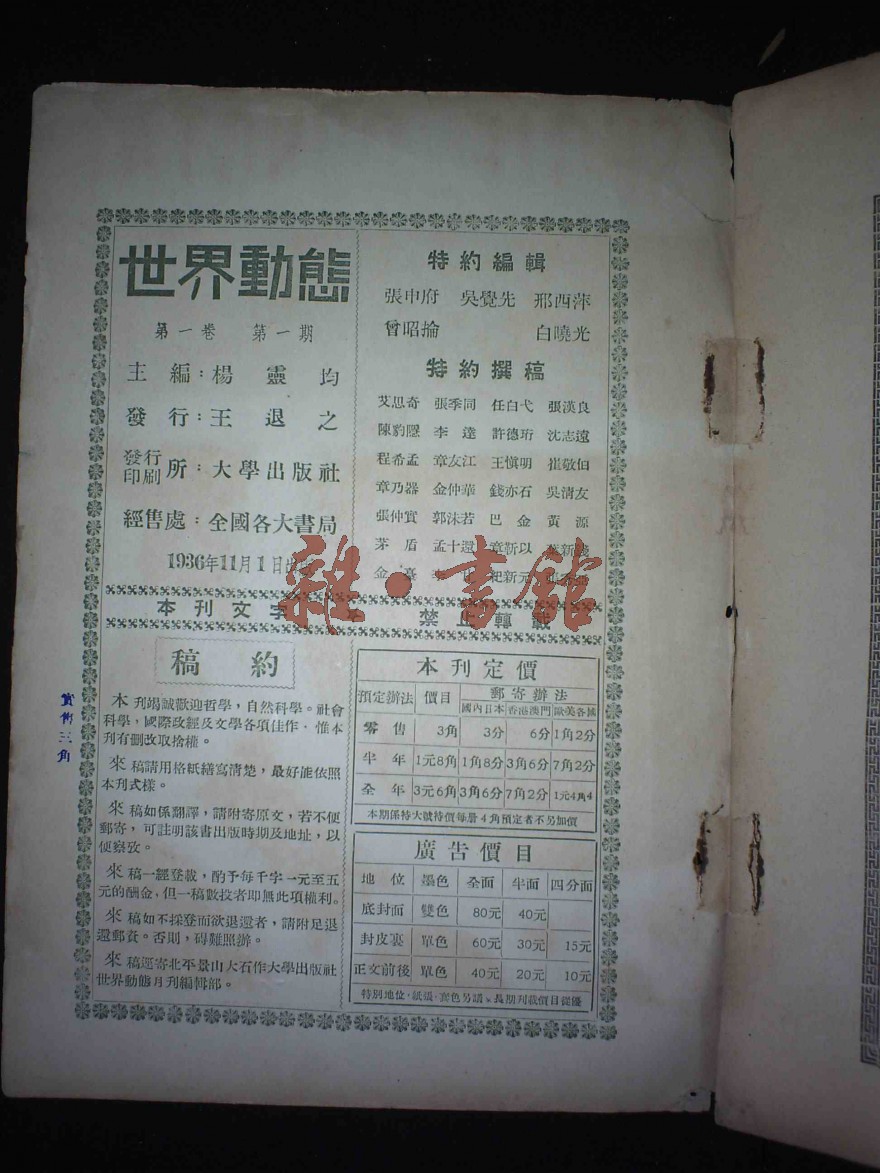 世界動態
第一卷 第一期
主編：楊靈均
發行：王退之
發行
印刷所：大學出版社
經售處：全國各大書局
1936年11月1日出
特約編輯
張申府 吳覺先 邢西萍
曾昭掄 白曉光
特約撰稿
艾思奇 張季同 任白戈 張漢良
陳豹隱 李達 許德珩 沈志遠
程希孟 章友江 王慎明 崔敬伯
章乃器 金仲華 錢亦石 吳清友
張仲實 郭沫若 巴金 黃源
茅盾 孟十還 章靳以
金
本刊文字 禁止轉載
雜·書館
稿約
本刊竭誠歡迎哲學，自然科學。社會
科學，國際政經及文學各項佳作。惟本
刊有刪改取捨權。
來稿請用格紙繕寫清楚，最好能依照
本刊式樣。
來稿如係翻譯，請附寄原文，若不便
郵寄，可註明該書出版時期及地址，以
便察攷。
來稿一經登載，酌予每千字一元至五
元的酬金，但一稿數投者即無此項權利。
來稿如不採登而欲退還者，請附足退
還郵資。否則，碍難照辦。
來稿逕寄北平景山大石作大學出版社
世界動態月刊編輯部。
實價三角
本刊定價
預定辦法 價目 郵寄辦法
國內日本 香港澳門 歐美各國
零售 3角 3分 6分 1角2分
半年 1元8角 1角8分 3角6分 7角2分
全年 3元6角 3角6分 7角2分 1元4角4
本期係特大號特價每冊4角預定者不另加價
廣告價目
地位 墨色 全面 半面 四分面
底封面 雙色 80元 40元
封皮裏 單色 60元 30元 15元
正文前後 單色 40元 20元 10元
特別地位·紙張·套色另議×長期刊載價目從優